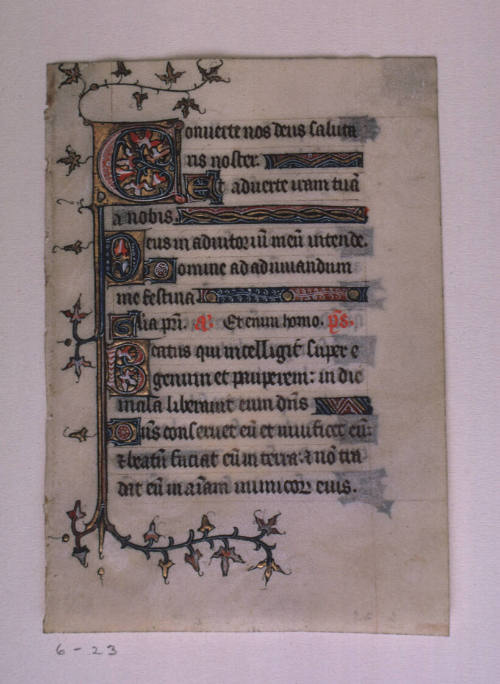 Conuerte nos deus saluta
ris noster.
Et aduerte iram tuā
a nobis.
Deus in adiutoriū meū intende.
Domine ad adiuuandum
me festina
Gl'ia pr̄i. a. Et enim homo. ps.
Beatus qui intelligit super e
genum et pauperem: in die
mala liberauit eum dn̄s
Dn̄s conseruet eū et uiuificet eū:
⁊ beatū faciat eū in terra: ⁊ nō tra
dat eū in aīam inimicoꝝ eius.
6-23